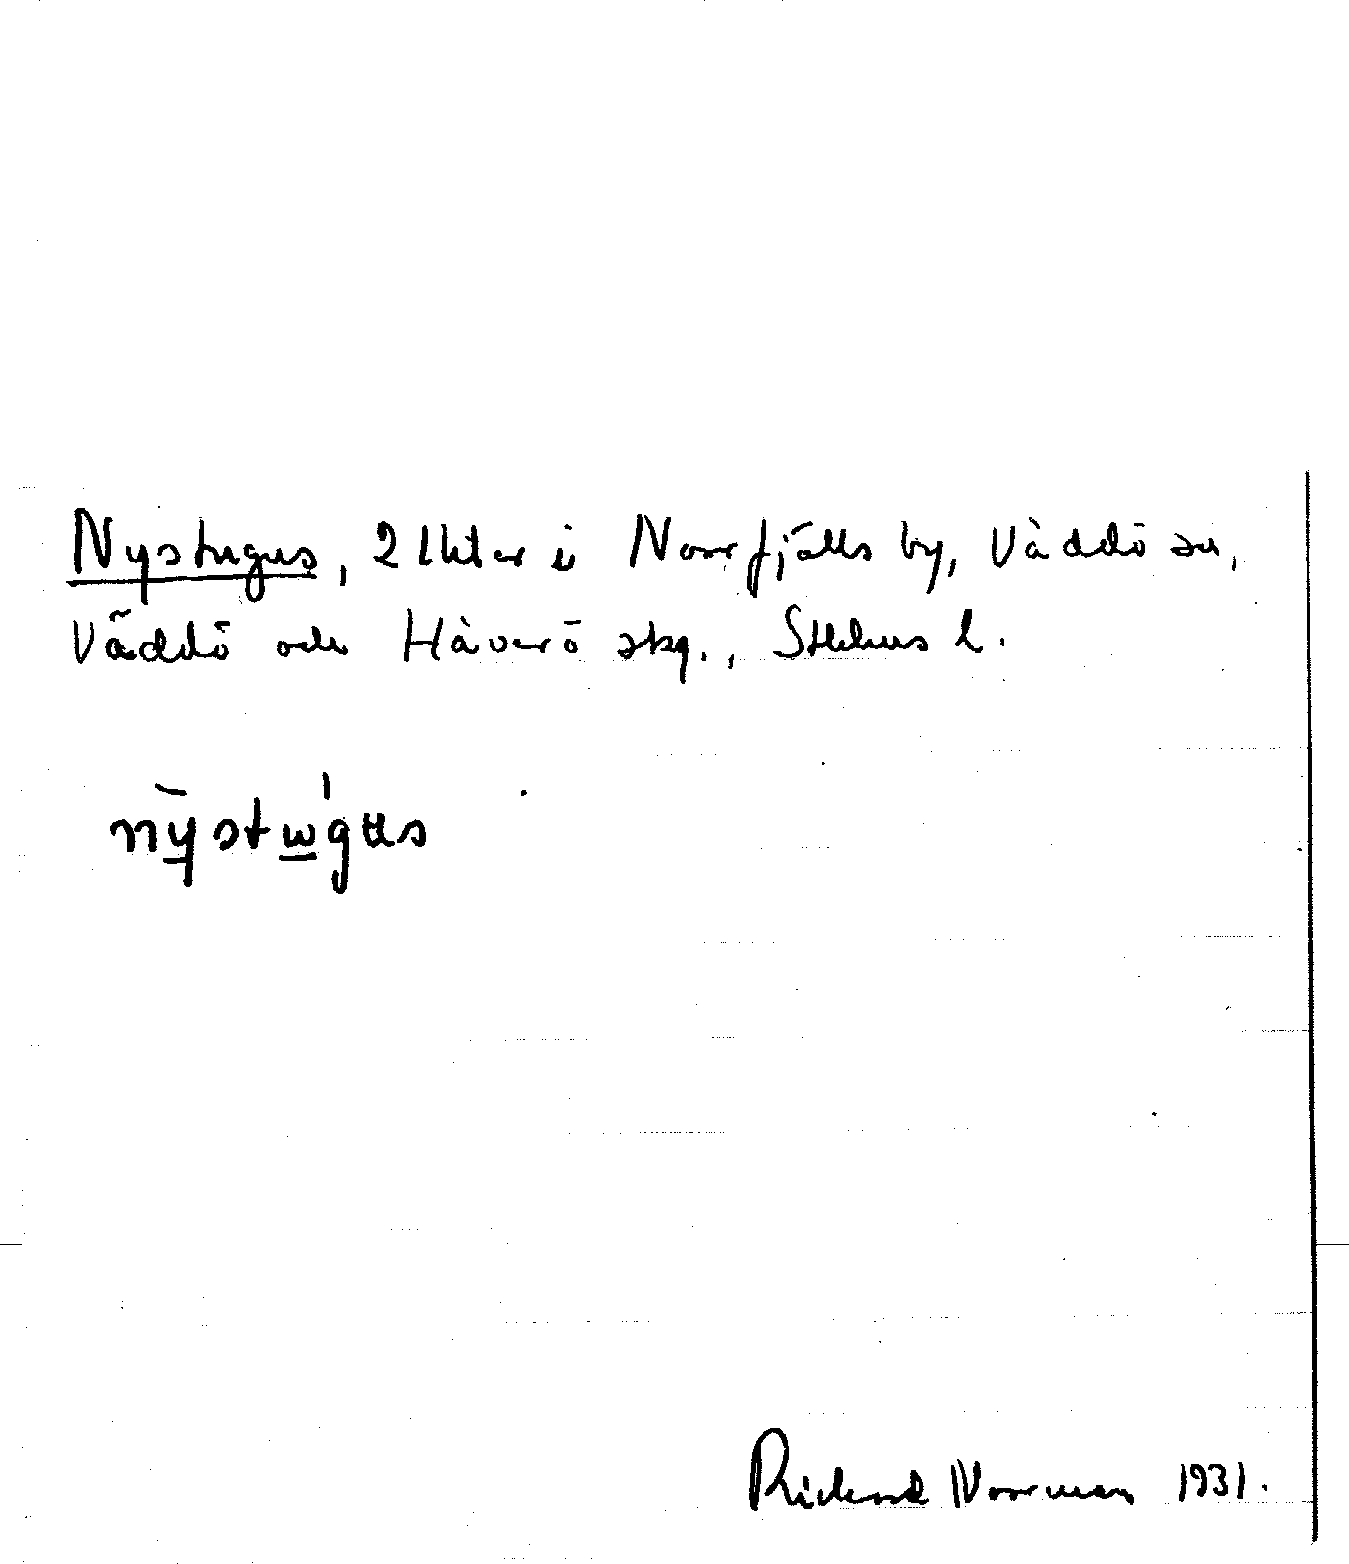 Nystugus, 2 lhter i Norrfjälls by, Väddö sn,
Väddö och Häverö skg., Sthlms l.
nỳstωgus
Rickard Norrman 1931.